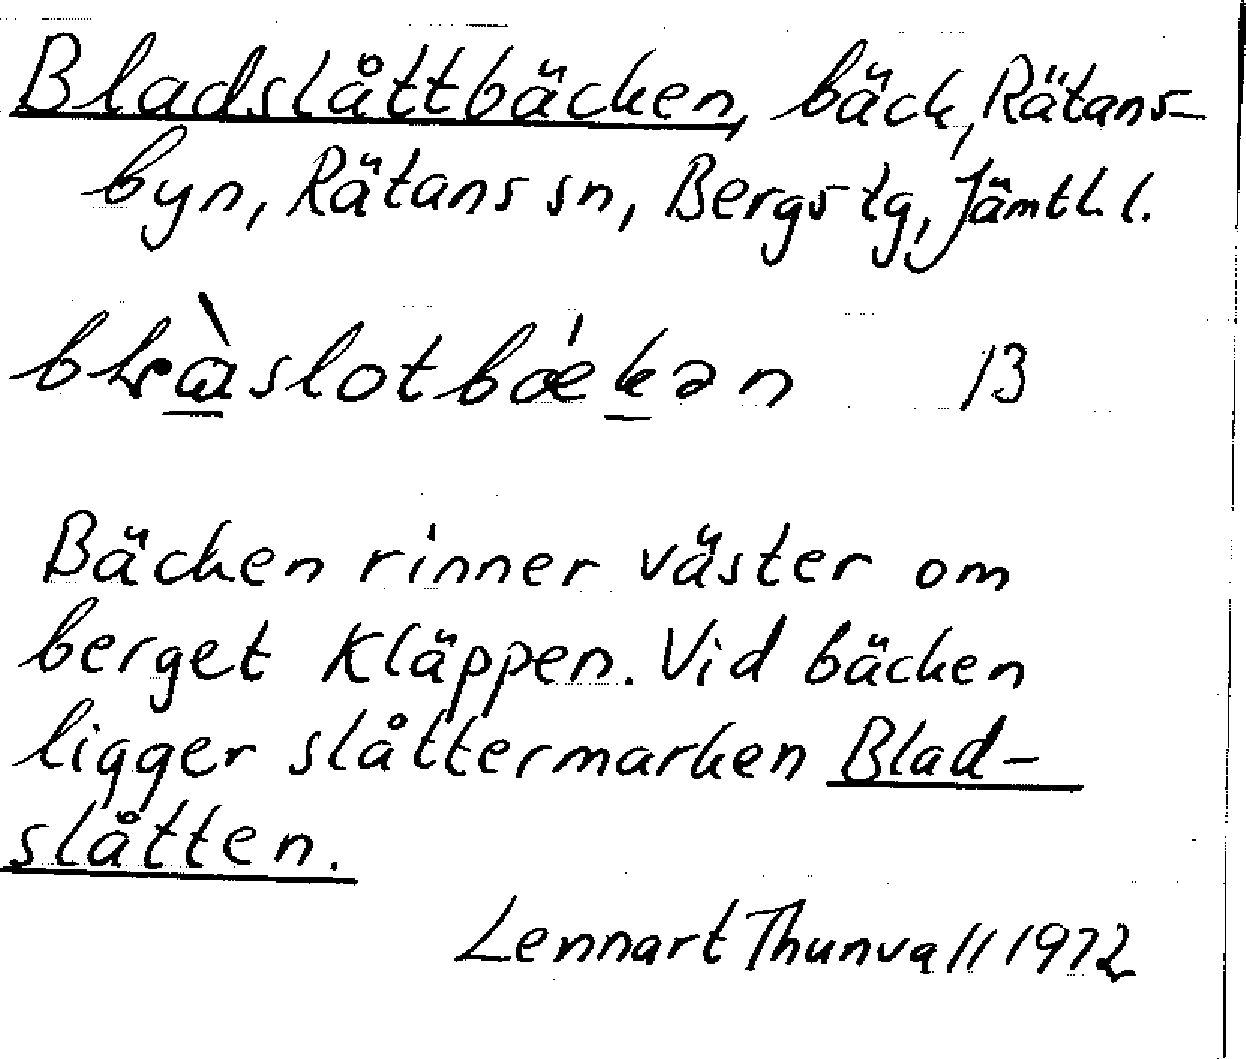 Bladslåttbäcken, bäck, Rätans-
byn, Rätans sn, Bergs tg, Jämtl. l.
13
Bäcken rinner väster om
berget Kläppen. Vid bäcken
ligger slåttermarken Blad-
slåtten.
Lennart Thunvall 1972